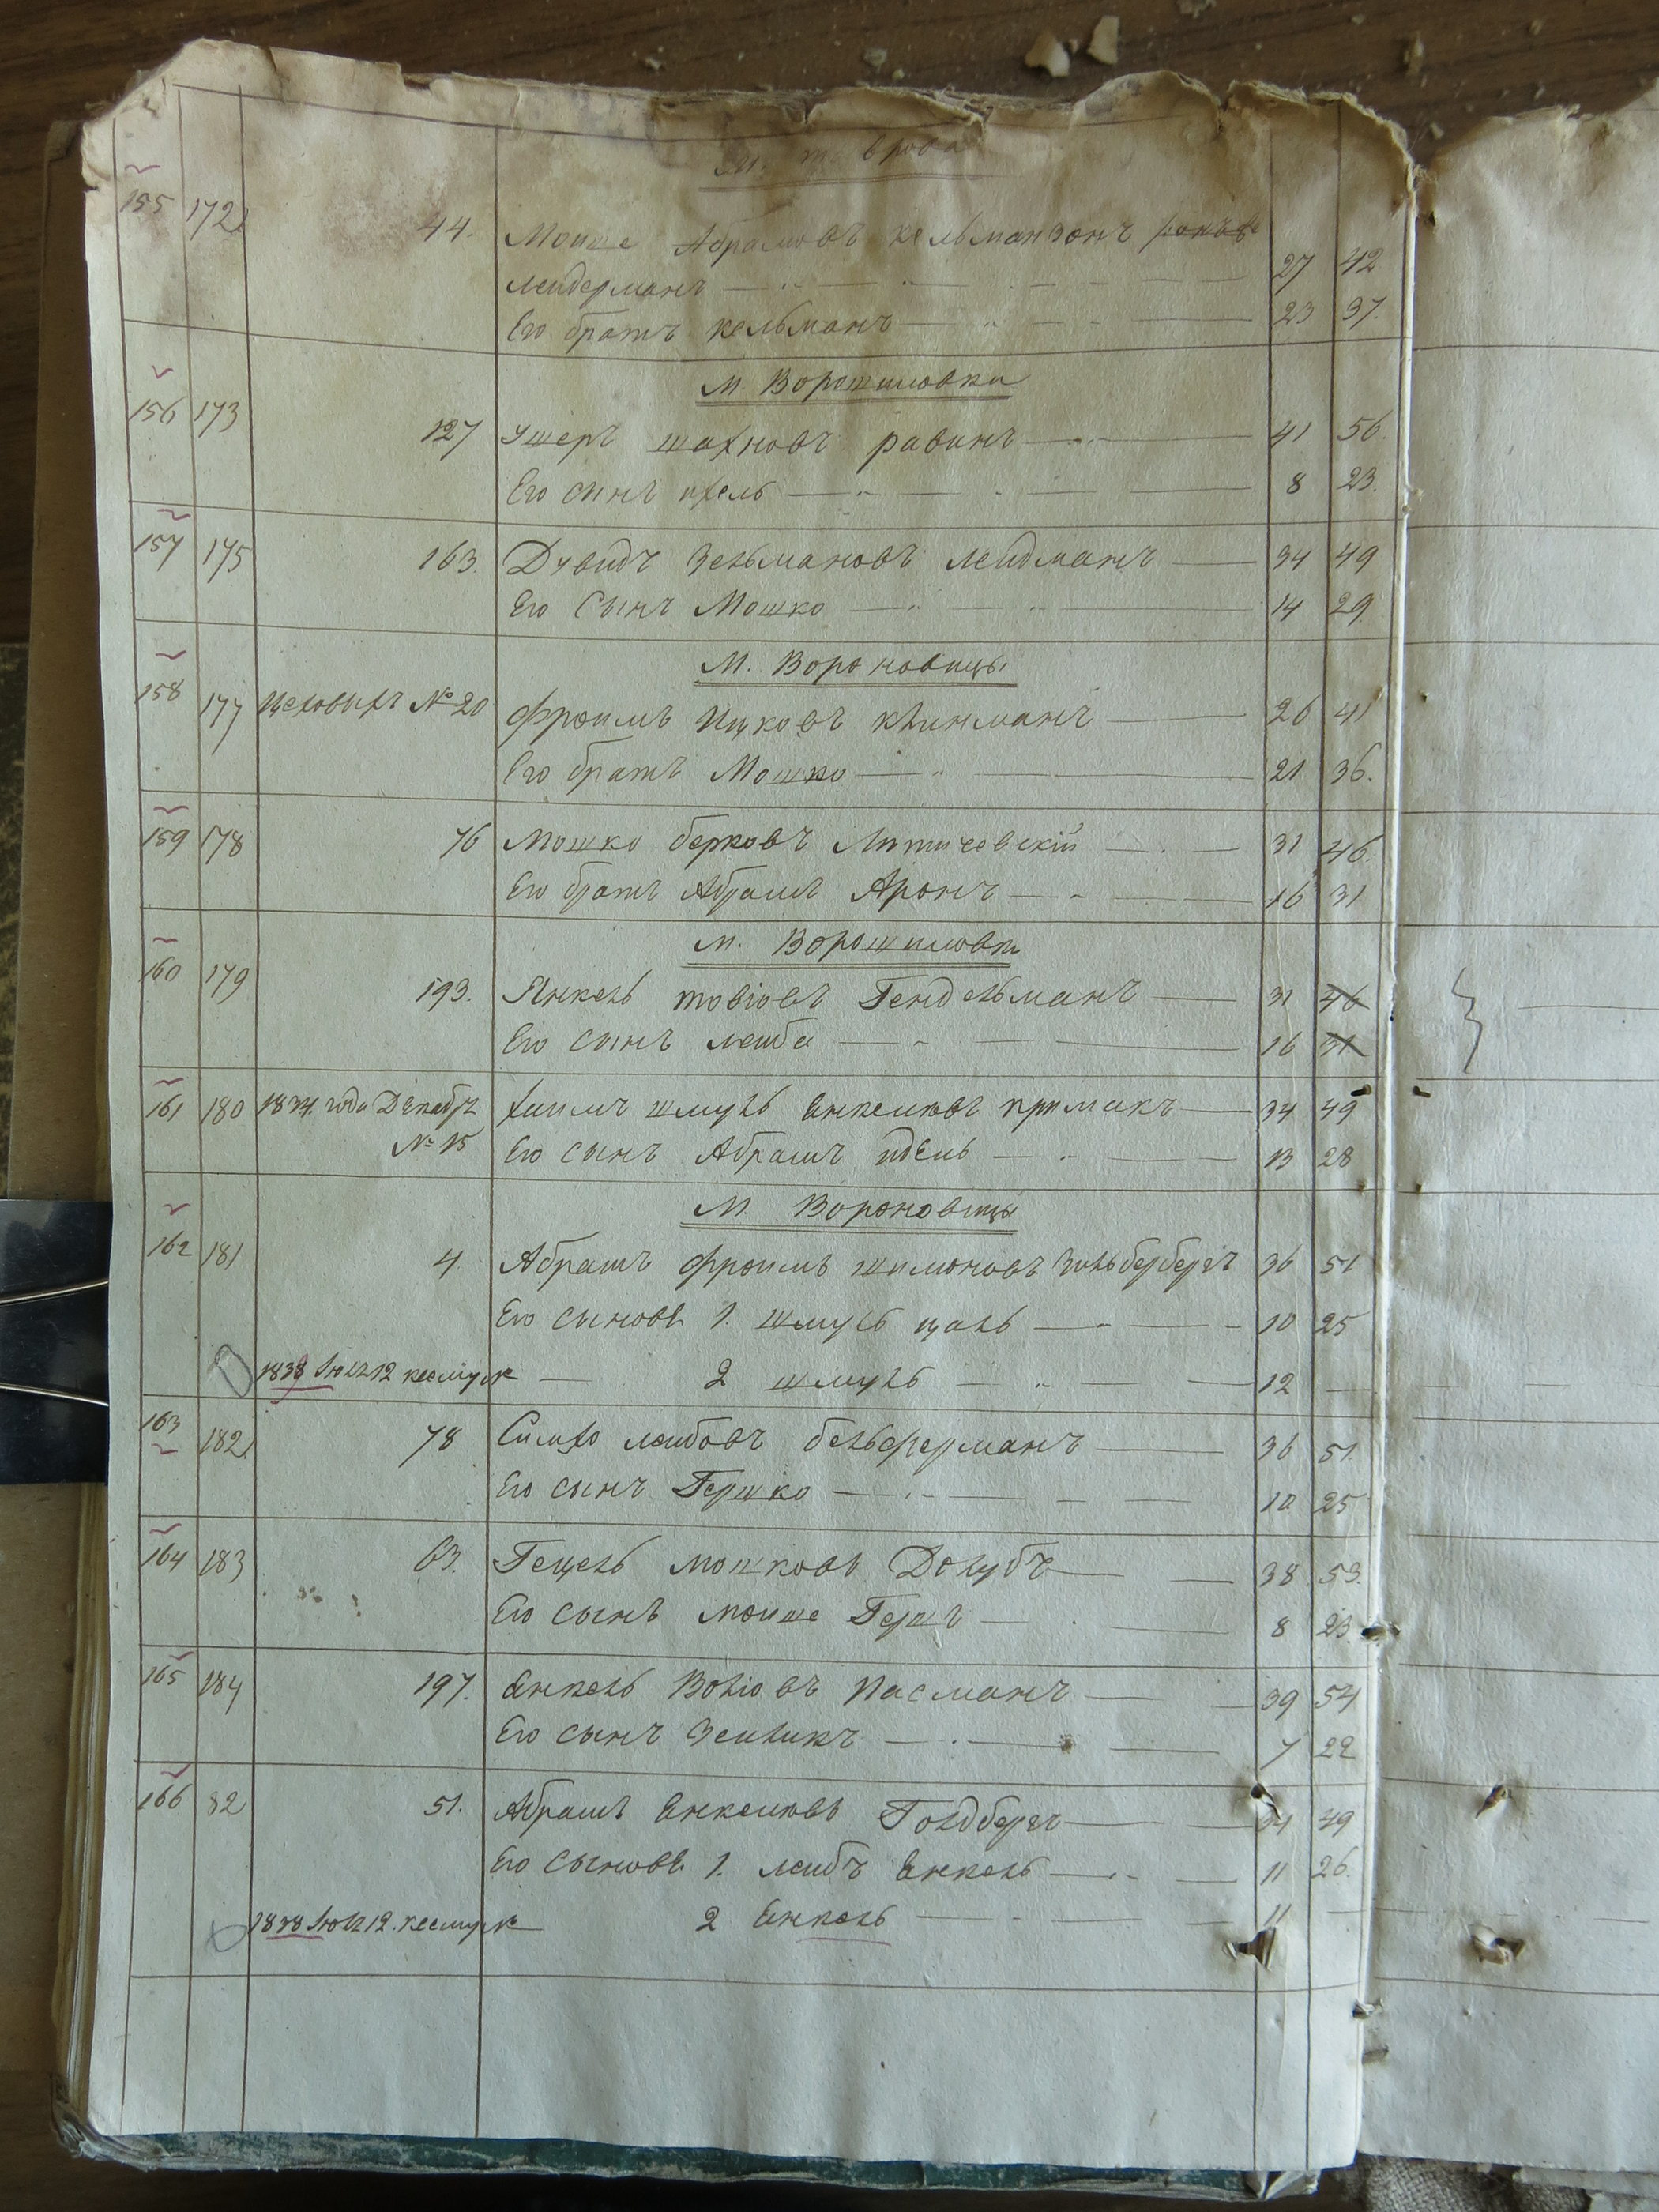 М. т
155 172 44. Моише Абрамовъ Кельманзонъ
Лейдерманъ 27 42
Его братъ Кельманъ 23 37
М. Ворошиловки
156 173 127 Ушеръ Шахновъ Равинъ 41 56.
Его сынъ Ихель 8 23.
157 175 163. Дувидъ Зельмановъ Лейдманъ 34 49
Его Сынъ Мошко 14 29.
М. Вороновицы
158 177 Цеховыхъ № 20 Фроимъ Ицковъ Клинманъ 26 41
Его братъ Мошко 21 36.
159 178 76 Мошко Берковъ Литичевскій 31 46.
Его братъ Абрамъ Аронъ 16 31
М. Ворошиловки
160 179 193. Янкель Товіовъ Гендельманъ 31 46
Его сынъ Лейба 16 31
161 180 1834. года Декабр Хаимъ Шмуль Енкелювъ Примакъ 34 49
№ 15 Его сынъ Абрамъ Идель 13 28
М. Вороновицы
162 181 4 Абрамъ Фроимъ Шимоновъ Зильбербергъ 36 51
Его сыновя 1. Шмуль Цаль 10 25
1838 Іюля 12 2 Шмуль 12
163 182 78 Симхо Лейбовъ Бельферманъ 36 51.
Его сынъ Гершко 10 25
164 183 63. Гецель Мошковъ Долубъ 38 53.
Его сынъ Моише Гершъ 8 23.
165 184 197. Енкель Воліовъ Пасманъ 39 54
Его сынъ Зейликъ 7 22
166 82 51. Абрамъ Енкелювъ Голдбергъ 34 49
Его сыновя 1. Лейбъ Енкель 11 26.
1838 Іюля 12. 2 Енкель 11